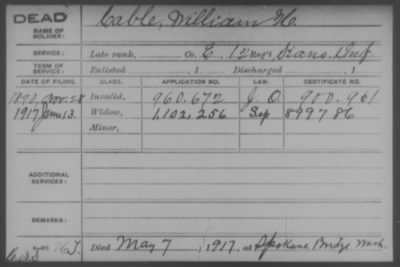 DEAD
NAME OF SOLDIER:
Cable, William H.
SERVICE:
Late rank, Co. E, 12 Reg't Kans. Inf
TERM OF SERVICE:
Enlisted , 1 Discharged , 1
DATE OF FILING. CLASS. APPLICATION NO. LAW. CERTIFICATE NO.
1890, Nov. 28 Invalid, 960.672 J. O. 900.961
1917 June 13. Widow, 1,102,256 Sep 899786
Minor,
ADDITIONAL SERVICES:
REMARKS:
Died May 7, 1917, at Spokane Bridge Wash.